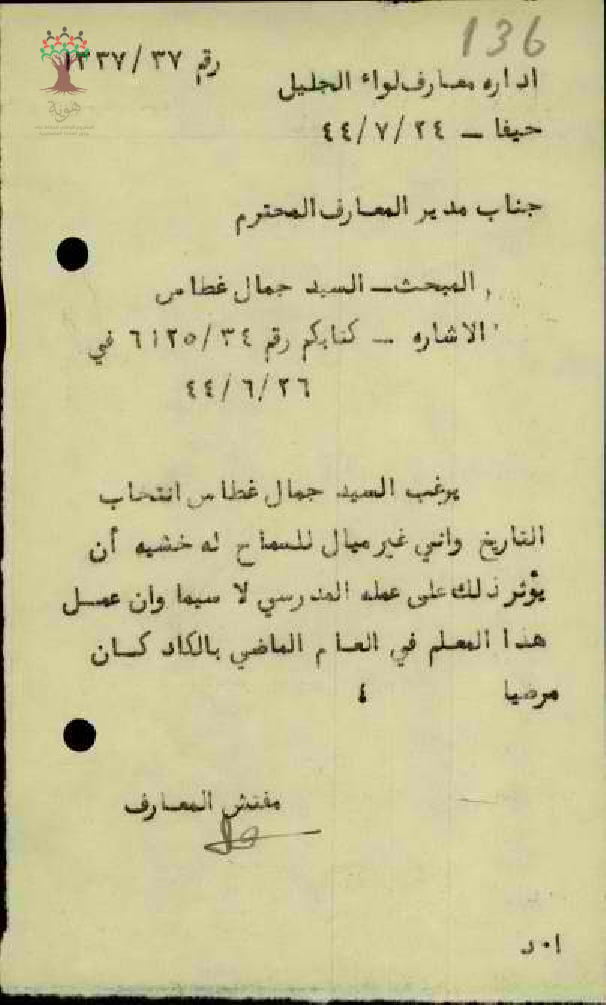 136
رقم ١٣٣٧/٣٧
اداره معارف لواء الجليل
حيفا – ٤٤/٧/٢٤
جناب مدير المعارف المحترم
المبحث – السيد جمال غطاس
الاشاره – كتابكم رقم ٦١٢٥/٣٤ في
٤٤/٦/٢٦
يرغب السيد جمال غطاس انتخاب
التاريخ وانني غير ميال للسماح له خشيه أن
يؤثر ذلك على عمله المدرسي لا سيما وان عمل
هذا المعلم في العام الماضي بالكاد كان
مرضيا ٤
مفتش المعارف
ا٠د
هوية